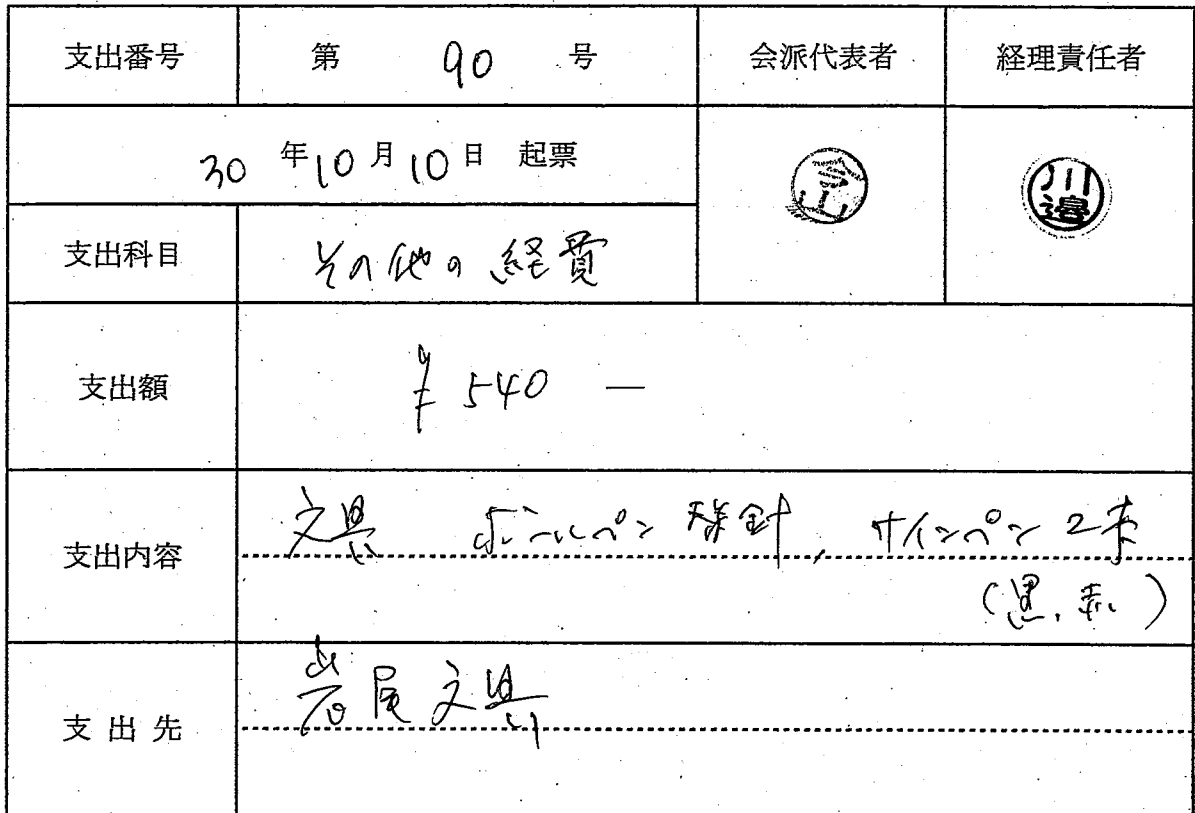 支出番号 第 90 号 会派代表者 経理責任者
30 年 10 月 10 日 起票
今山 川邉
支出科目 その他の経費
支出額 ¥540 —
支出内容 文具 ボールペン 替針, サインペン 2本
(黒, 赤)
支出先 岩尾文具